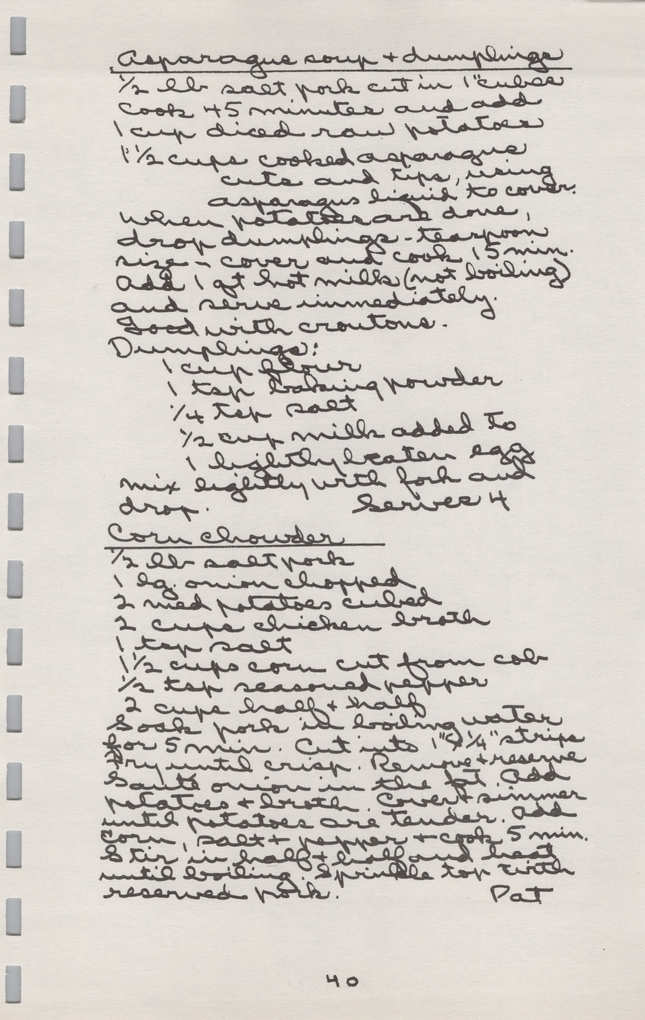 Asparagus soup + dumplings
1/2 lb salt pork cut in 1" cubes
cook 45 minutes and add
1 cup diced raw potatoes
1 1/2 cups cooked asparagus
cuts and tips, using
asparagus liquid to cover.
When potatoes are done,
drop dumplings - teaspoon
size - cover and cook 15 min.
Add 1 qt hot milk (not boiling)
and serve immediately.
Good with croutons.
Dumplings:
1 cup flour
1 tsp baking powder
1/4 tsp salt
1/2 cup milk added to
1 lightly beaten egg
mix lightly with fork and
drop. Serves 4
Corn chowder
1/2 lb salt pork
1 lg. onion chopped
2 med potatoes cubed
2 cups chicken broth
1 tsp salt
1 1/2 cups corn cut from cob
1/2 tsp seasoned pepper
2 cups half + half
Soak pork in boiling water
for 5 min. Cut into 1" x 1/4" strips
Fry until crisp. Remove + reserve
Sauté onion in the fat. Add
potatoes + broth. Cover + simmer
until potatoes are tender. Add
corn, salt + pepper, + cook 5 min.
Stir in half + half and heat
until boiling. Sprinkle top with
reserved pork. Pat
40